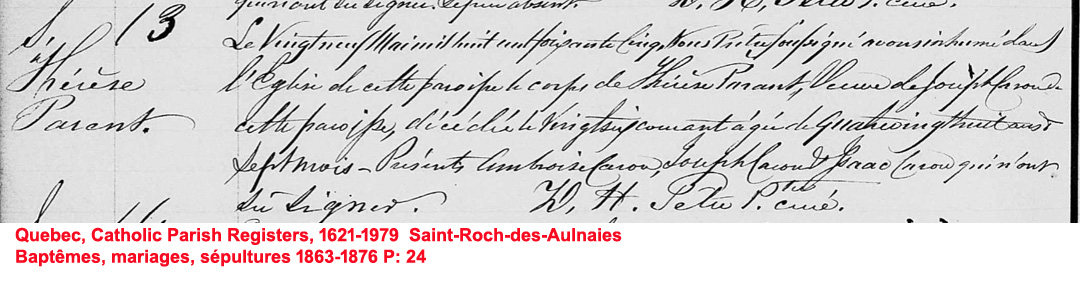 qui n'ont su signer. Le père absent. D. H. Têtu Ptre. curé.
S. 13
Thérèse
Parent.
Le Vingt neuf Mai mil huit cent soixante cinq, Nous Prêtre soussigné avons inhumé dans
l'Eglise de cette paroisse le corps de Thérèse Parant, Veuve de Joseph Caron de
cette paroisse, décédée le Vingt six courant agée de Quatre vingt huit ans &
sept mois - Présents Ambroise Caron, Joseph Caron & Isaac Caron qui n'ont
su signer. D. H. Têtu Ptre. curé.
Quebec, Catholic Parish Registers, 1621-1979 Saint-Roch-des-Aulnaies
Baptêmes, mariages, sépultures 1863-1876 P: 24